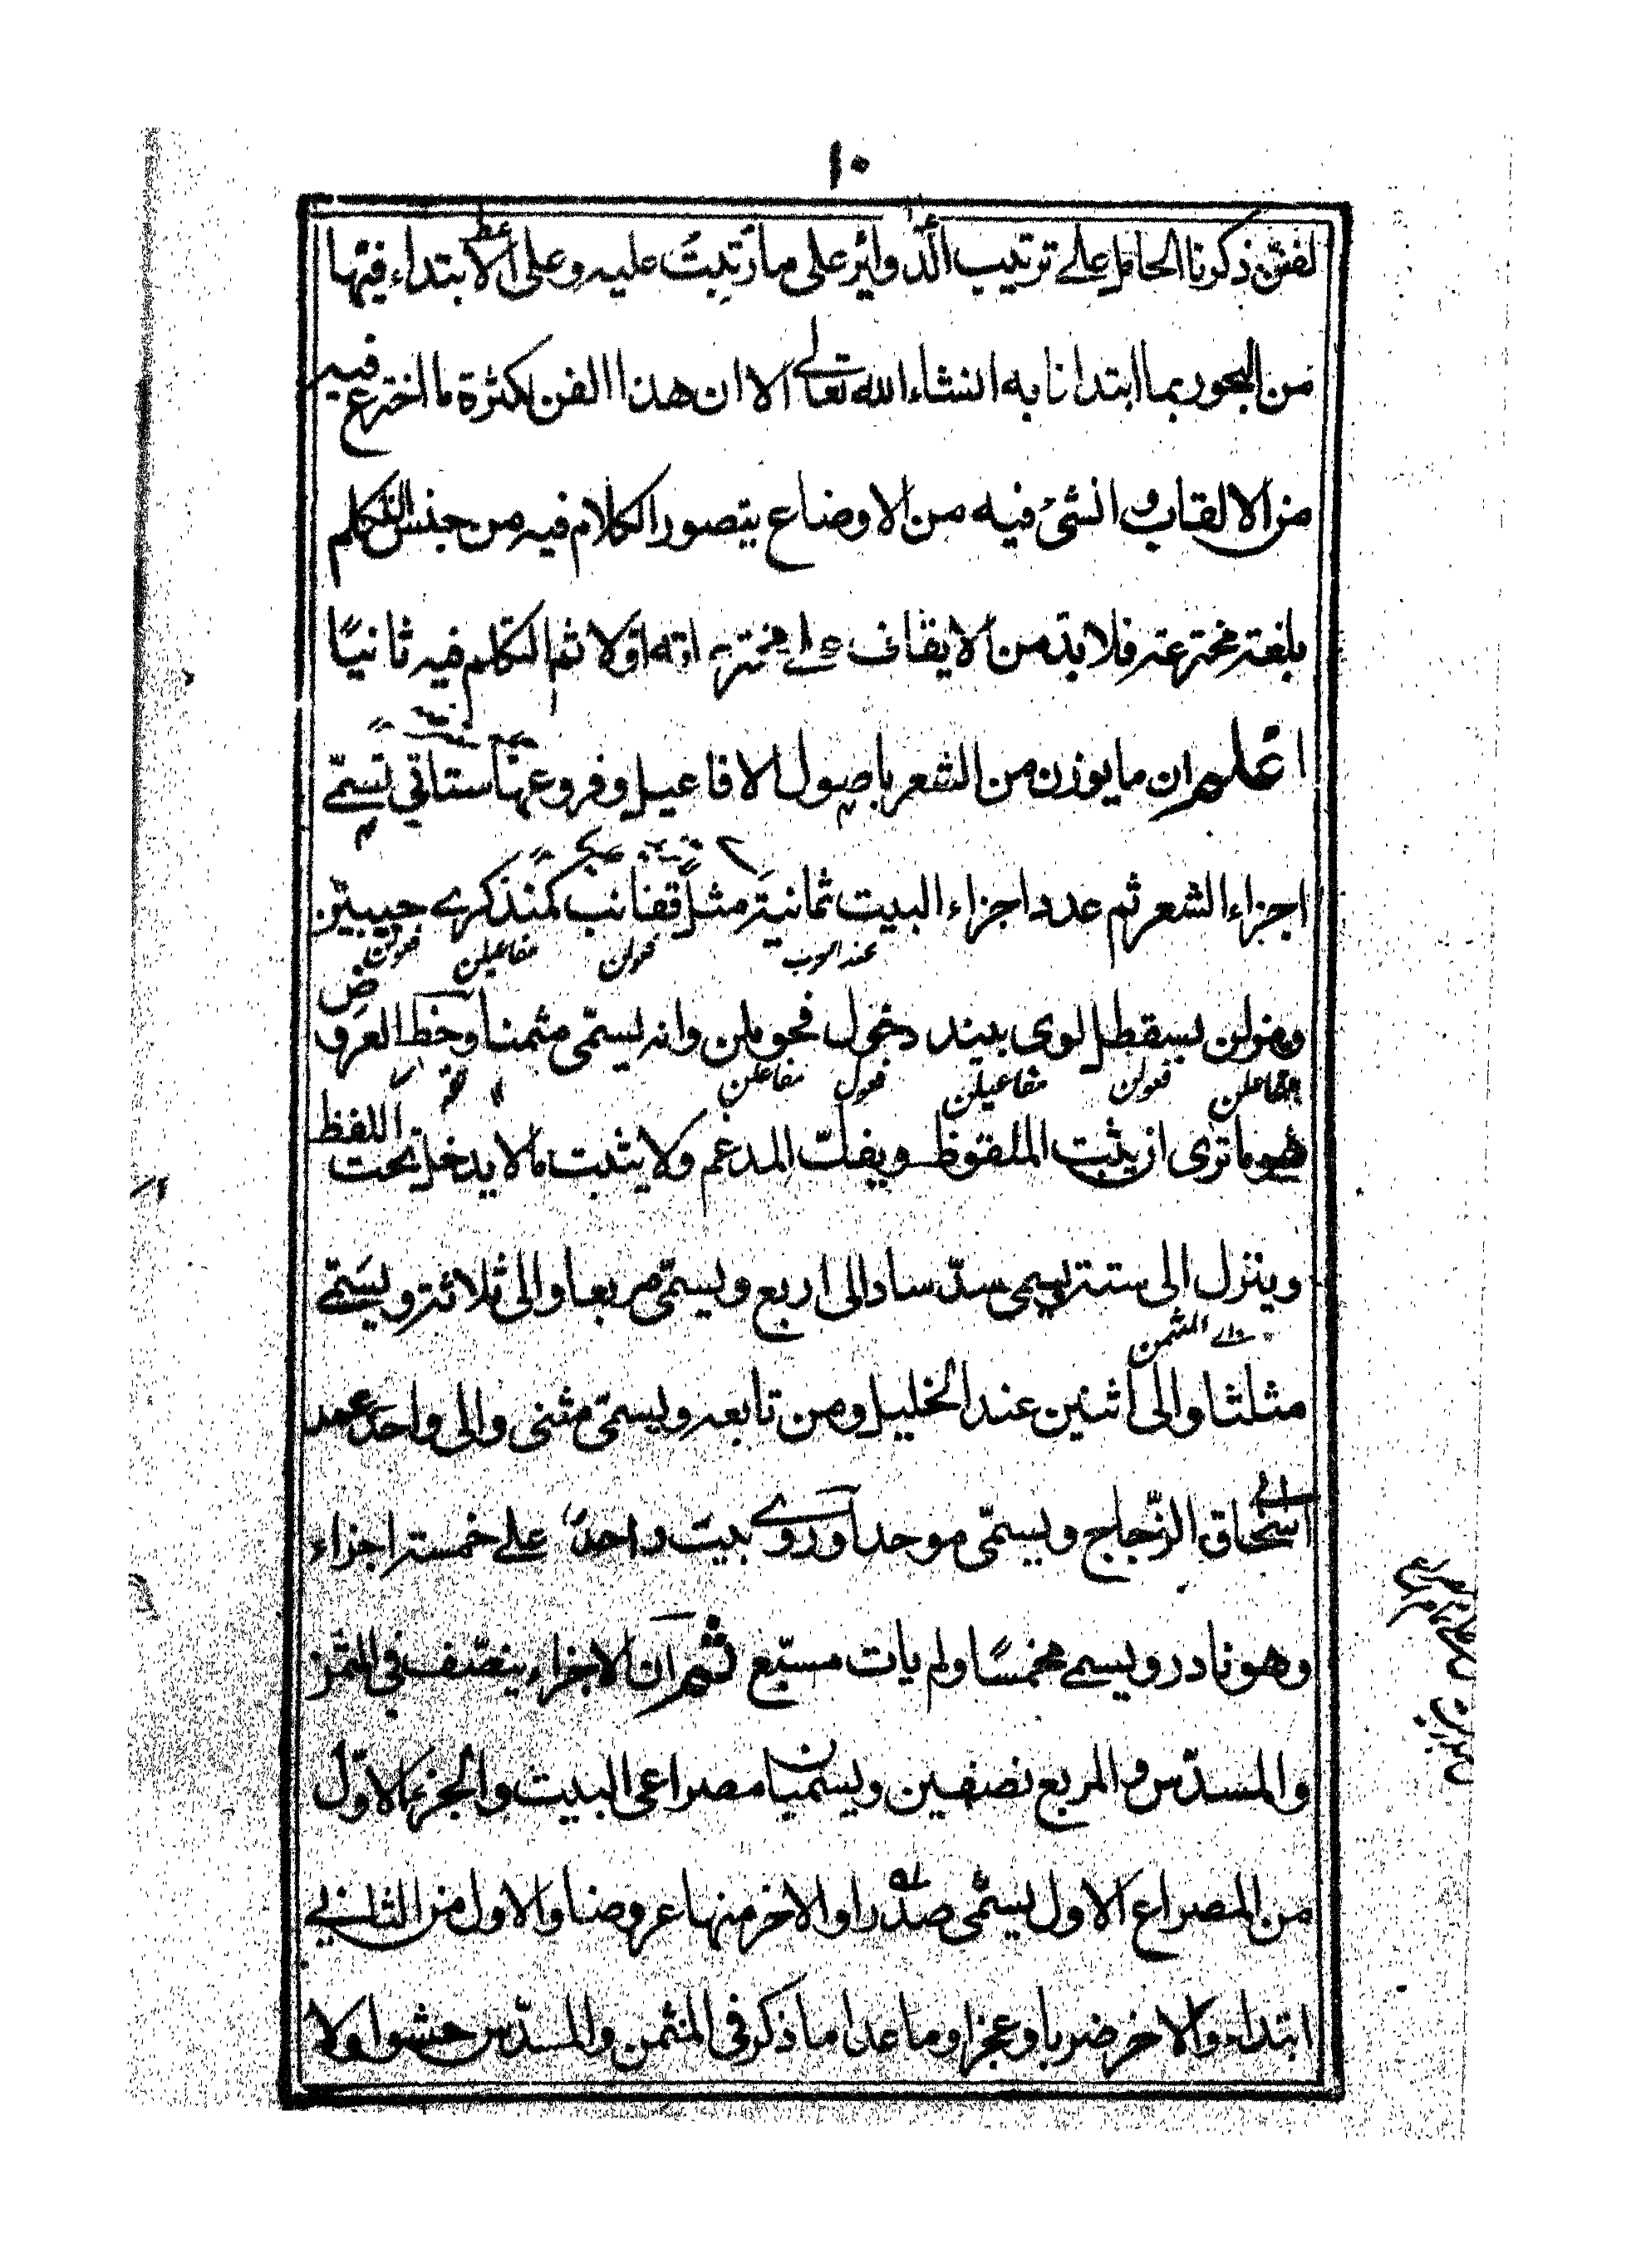 ١٠
لفن ذكرنا الحامل على ترتيب الدوائر على ما رتبت عليه وعلى الابتداء فيها
من البحور بما ابتدانا به انشاء الله تعالى الا ان هذا الفن لكثرة ما اخترع فيه
من الالقاب و انشئ فيه من الاوضاع يتصور الكلام فيه من جنس التكلم
بلغة مخترعة فلا بد من الايقاف على مخترعاته اولا ثم التكلم فيه ثانيًا
اعلم ان ما يوزن من الشعر باصول الافاعيل وفروعها ستاتي تسمى
اجزاء الشعر ثم عدد اجزاء البيت ثمانية مثل قفانب كمنذكرى حبيبين
عند العرب فعولن مفاعيلن فعولن
ومنزلن بسقطل لوى بيند دخول فحوملن وانه يسمى مثمنا وخط العروض
مفاعلن فعولن مفاعيلن فعول مفاعلن
هو ما ترى ان يثبت الملفوظ ويفك المدغم ولا يثبت ما لا يدخل تحت اللفظ
وينزل الى ستة يسمى مسدسا والى اربع ويسمى مربعا والى ثلاثة ويسمى
اى المثمن
مثلثا والى اثنين عند الخليل ومن تابعه ويسمى مثنى والى واحد عند
ابى اسحاق الزجاج ويسمى موحدا وروى بيت واحد على خمسة اجزاء
وهو نادر ويسمى مخمسًا ولم يات مسبّع ثم ان الاجزاء ينصّف فى المثمن
والمسدس و المربع نصفين ويسميان مصراعى البيت والجزء الاول
من المصراع الاول يسمى صدرا والاخر منها عروضا والاول من الثاني
ابتداء والاخر ضربا وعجزا وما عدا ما ذكر فى المثمن والمسدس حشوا ولا